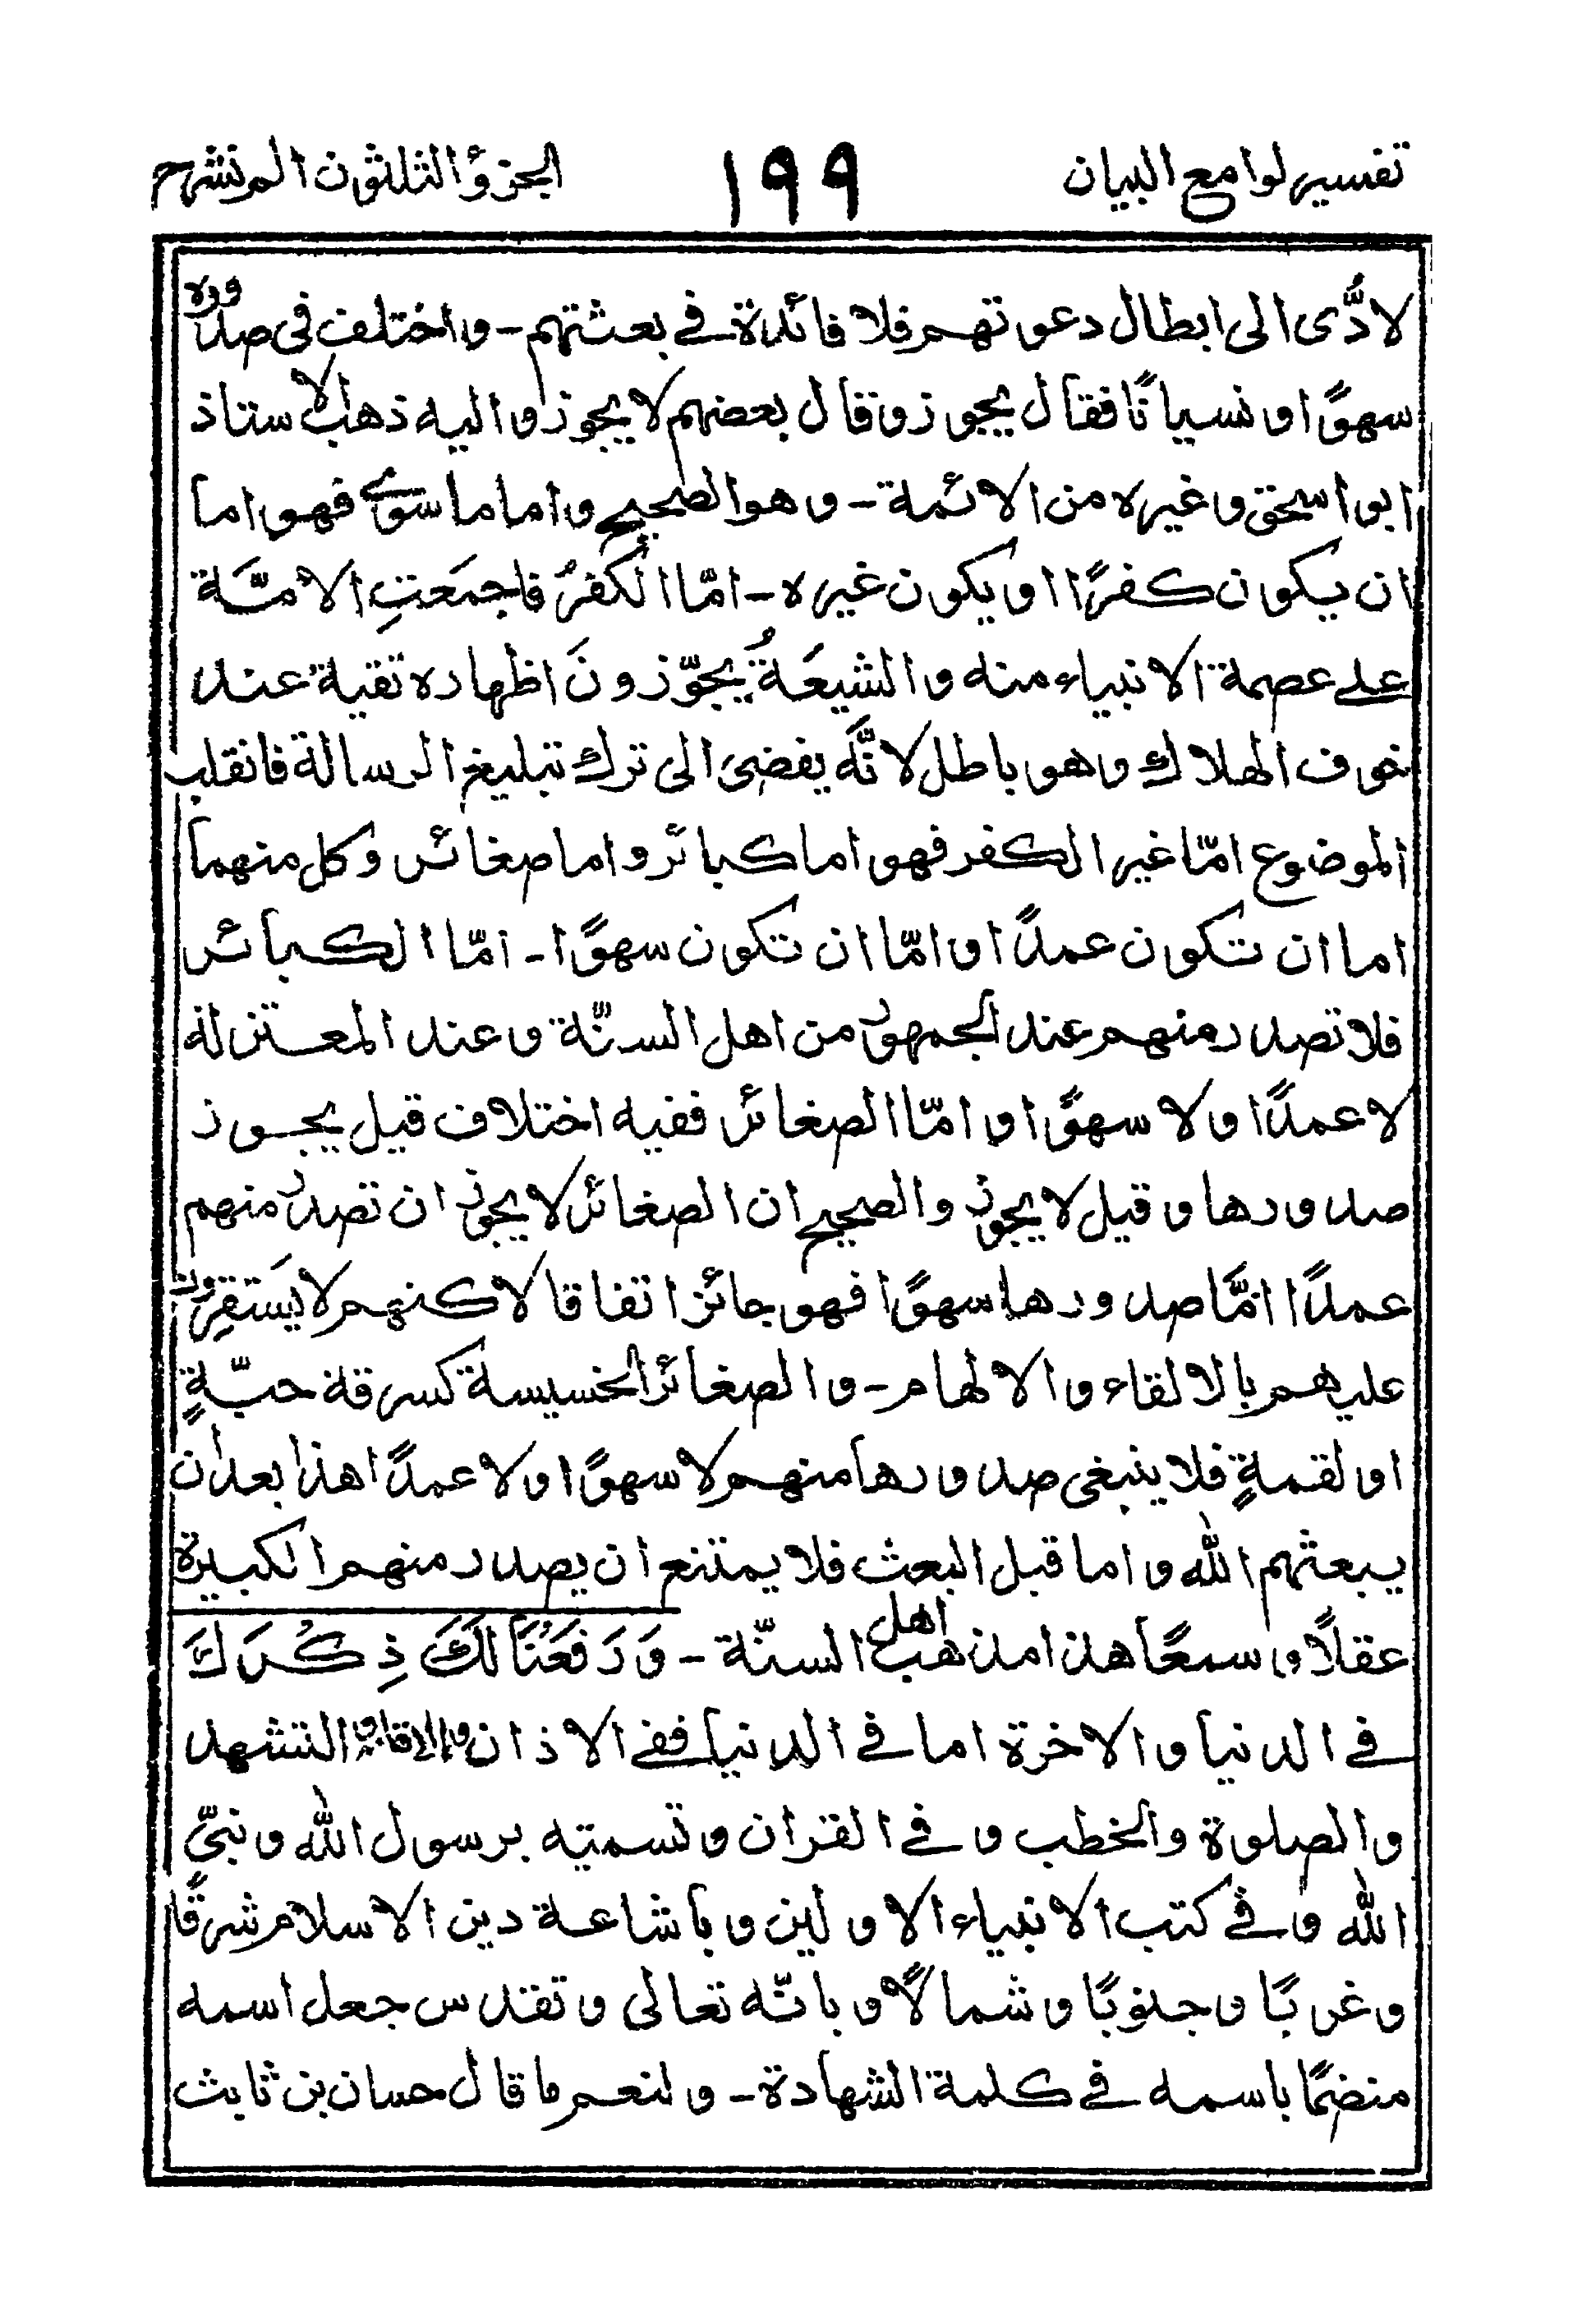 تفسير لوامع البيان ١٩٩ الجزؤ الثلثون الم نشرح
لادّى الى ابطال دعوتهم فلا فائدة في بعثتهم - واختلف فى صدوره
سهوًا او نسيانًا فقال يجوز وقال بعضهم لا يجوز واليه ذهب الاستاذ
ابو اسحٰق وغيره من الائمة - وهو الصحيح واما ما سوى فهو اما
ان يكون كفرًا او يكون غيره - امّا الكفرُ فاجمَعتِ الامّة
على عصمة الانبياء منه والشيعَةُ يجوّزونَ اظهاره تقية عند
خوف الهلاك وهو باطل لانَّه يفضى الى ترك تبليغ الرسالة فانقلب
الموضوع امّا غير الكفر فهو اما كبائر واما صغائر وكل منهما
اما ان تكون عمدًا او امّا ان تكون سهوًا - امّا الكبائر
فلا تصدر منهم عند الجمهور من اهل السنّة وعند المعتزلة
لا عمدًا ولا سهوًا او امّا الصغائر ففيه اختلاف قيل يجوز
صدورها وقيل لا يجوز والصحيح ان الصغائر لا يجوز ان تصدر منهم
عمدًا امَّا صدورها سهوًا فهو جائز اتفاقا لاكنهم لا يَستقِرون
عليهم بالالقاء والالهام - والصغائر الخسيسة كسرقة حبّةٍ
او لقمةٍ فلا ينبغى صدورها منهم لا سهوًا ولا عمدًا هذا بعد ان
يبعثهم الله واما قبل البعث فلا يمتنع ان يصدر منهم الكبيرة
عقلًا و سمعًا هذا مذهب اهل السنّة - وَرَفَعْنَا لَكَ ذِكْرَكَ
في الدنيا والاخرة اما في الدنيا ففي الاذان والاقامة والتشهد
والصلوة والخطب وفي القران وتسميته برسول الله ونبيّ
الله وفي كتب الانبياء الاولين وباشاعة دين الاسلام شرقًا
وغربًا وجنوبًا وشمالًا وبانّه تعالى وتقدس جعل اسمه
منضمًا باسمه في كلمة الشهادة - ولنعم ما قال حسان بن ثابت